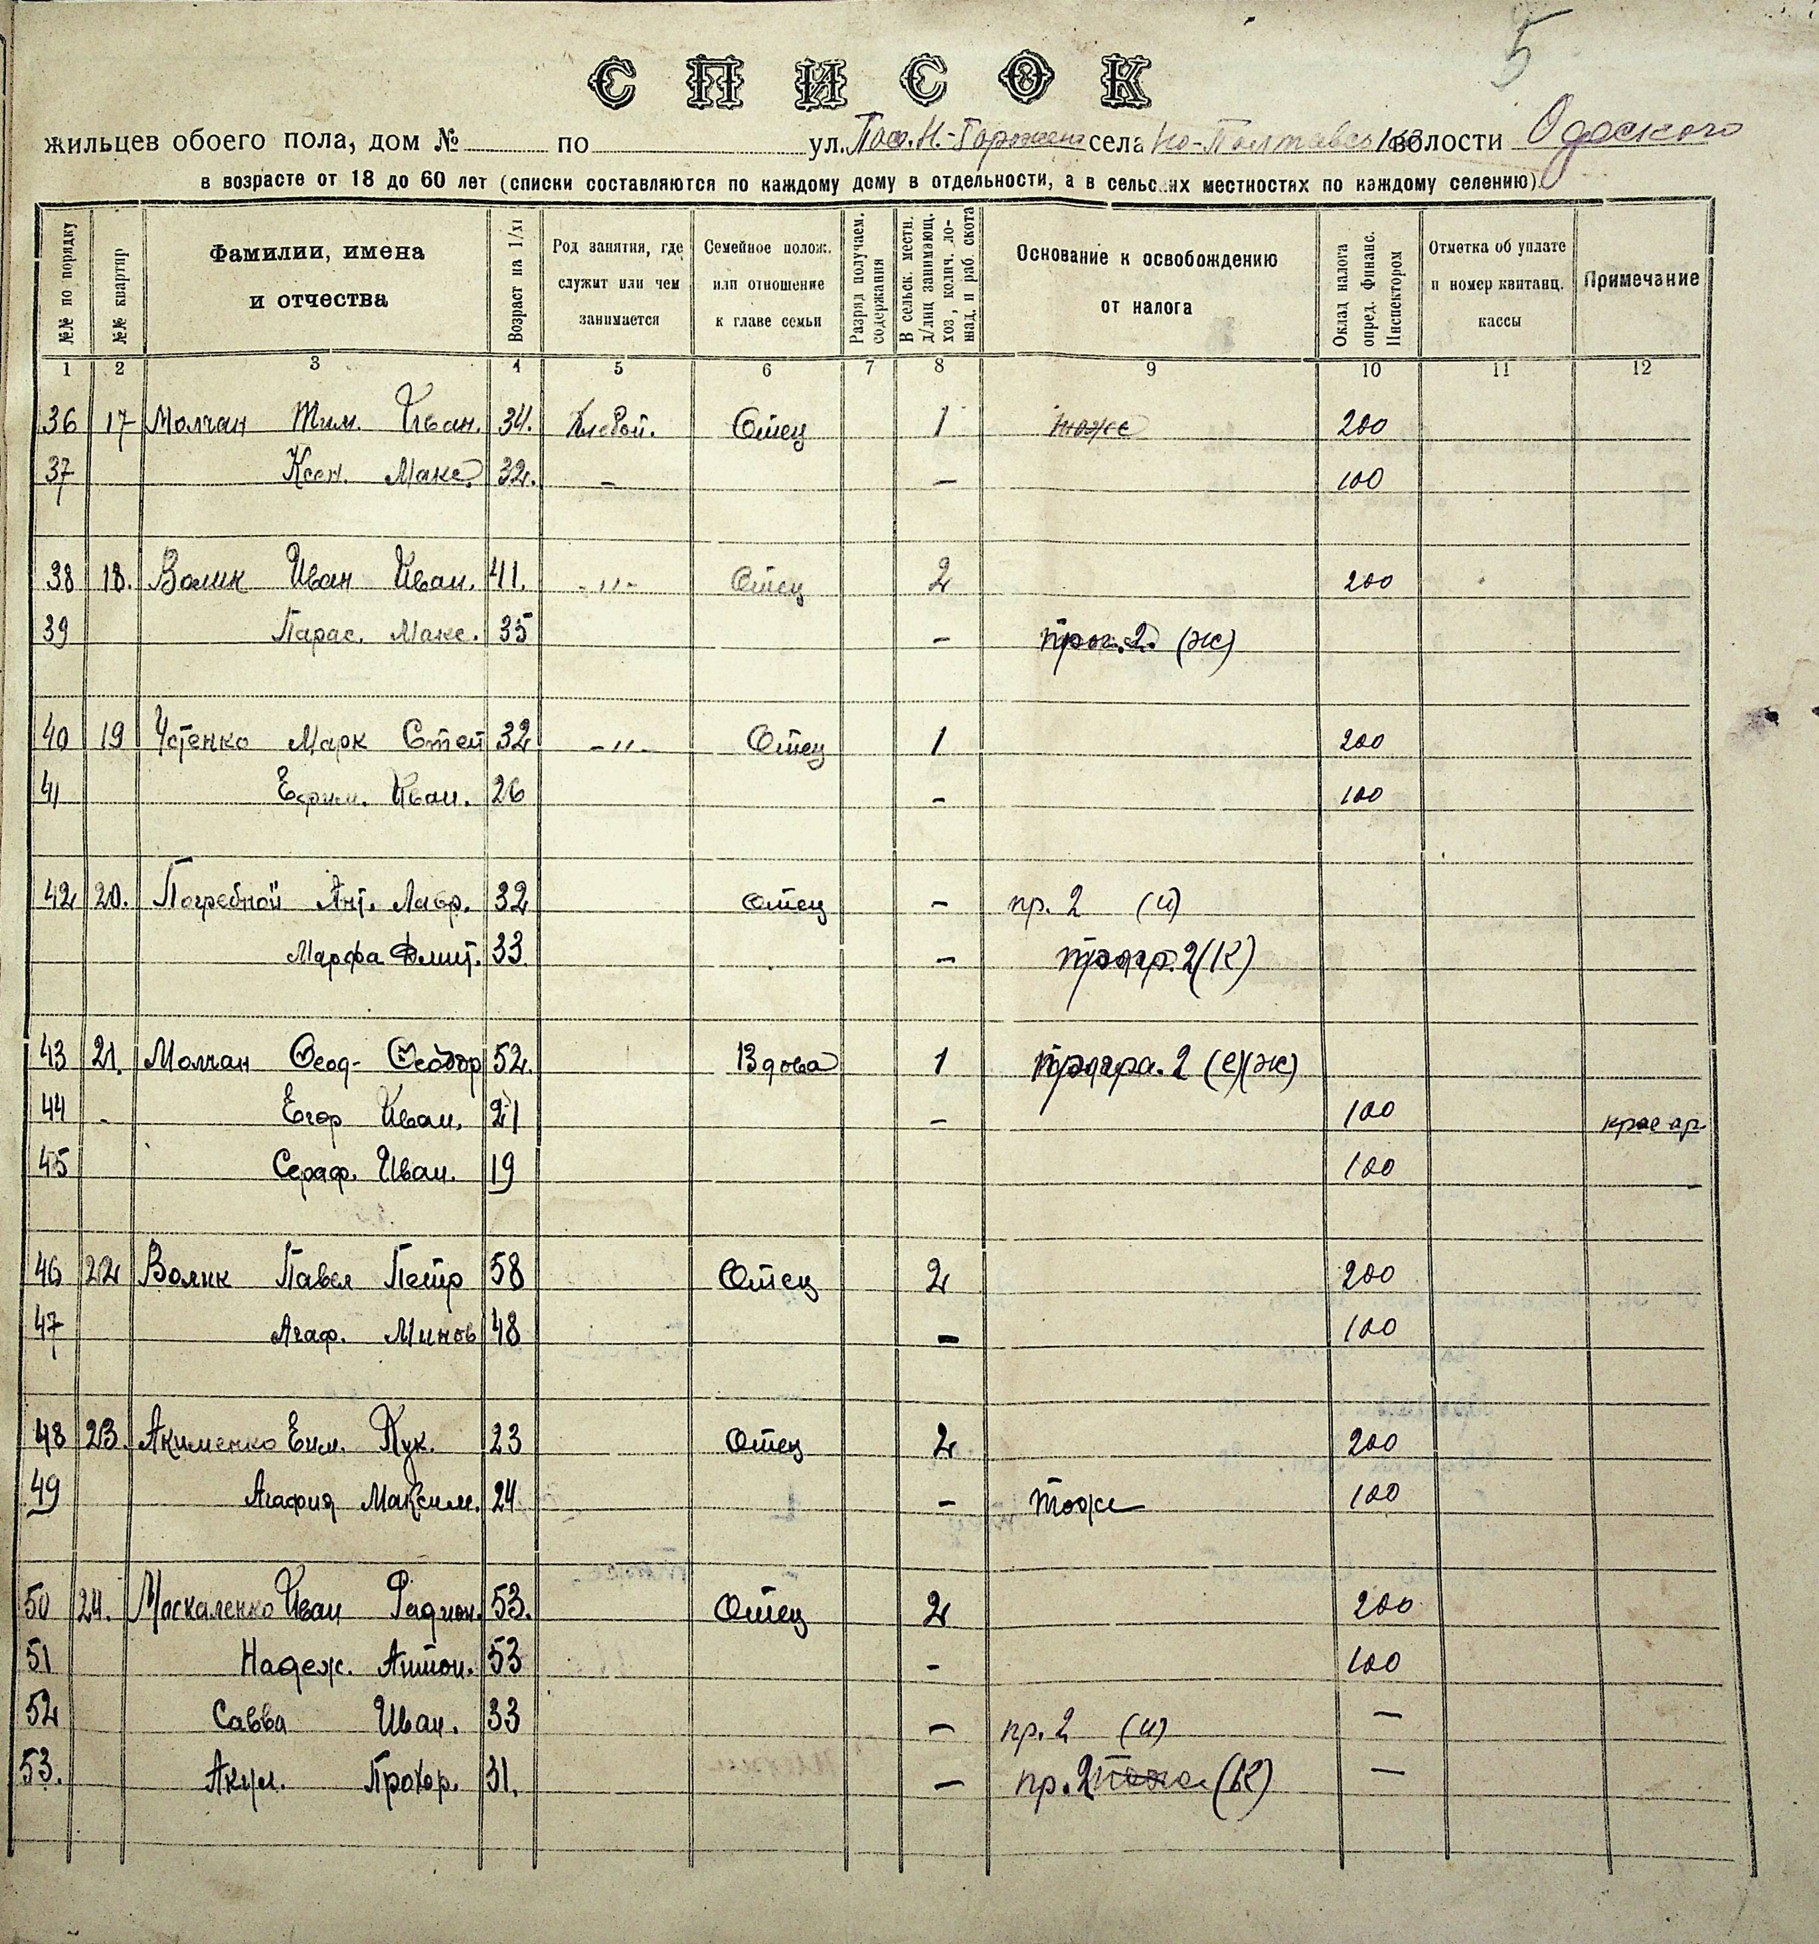 5
СПИСОК
жильцев обоего пола, дом № по ул. Пос. Н.- села Но-Полтавс волости Одесского
в возрасте от 18 до 60 лет (списки составляются по каждому дому в отдельности, а в сельских местностях по каждому селению).
№№ по порядку | №№ квартир | Фамилии, имена и отчества | Возраст на 1/XI | Род занятия, где служит или чем занимается | Семейное полож. или отношение к главе семьи | Разряд получаем. содержания | В сельск. местн. д/лиц занимающ. хоз., колич. лошад. и раб. скота | Основание к освобождению от налога | Оклад налога опред. финанс. Инспектором | Отметка об уплате и номер квитанц. кассы | Примечание
1 2 3 4 5 6 7 8 9 10 11 12
36 17 Молчан Тим. Иван. 34. Хлебоп. Отец 1 тоже 200
37 Ксен. Макс. 32. - - 100
38 18. Волик Иван Иван. 41. -"- Отец 2 200
39 Парас. Макс. 35 - 2. (ж)
40 19 Устенко Марк Степ 32 -"- Отец 1 200
41 Ефим. Иван. 26 - 100
42 20. Погребной Ант. Лавр. 32 отец - пр. 2 (и)
Марфа Дмит. 33. - 2 (к)
43 21. Молчан Феод- Феодор 52. Вдова 1 2 (е)(ж)
44 - Егор Иван. 21 - 100 крас ар
45 Сераф. Иван. 19 100
46 22 Волик Павел Петр 58 Отец 2 200
47 Агаф. Минов 48 - 100
48 23. Акименко Еим. Лук. 23 Отец 2 200
49 Агафия Максим. 24 - тоже 100
50 24. Москаленко Иван Радион. 53. Отец 2 200
51 Надеж. Антон. 53 - 100
52 Савва Иван. 33 - пр. 2 (и) -
53. Акул. Прохор. 31. - пр. 2 тоже (к) -